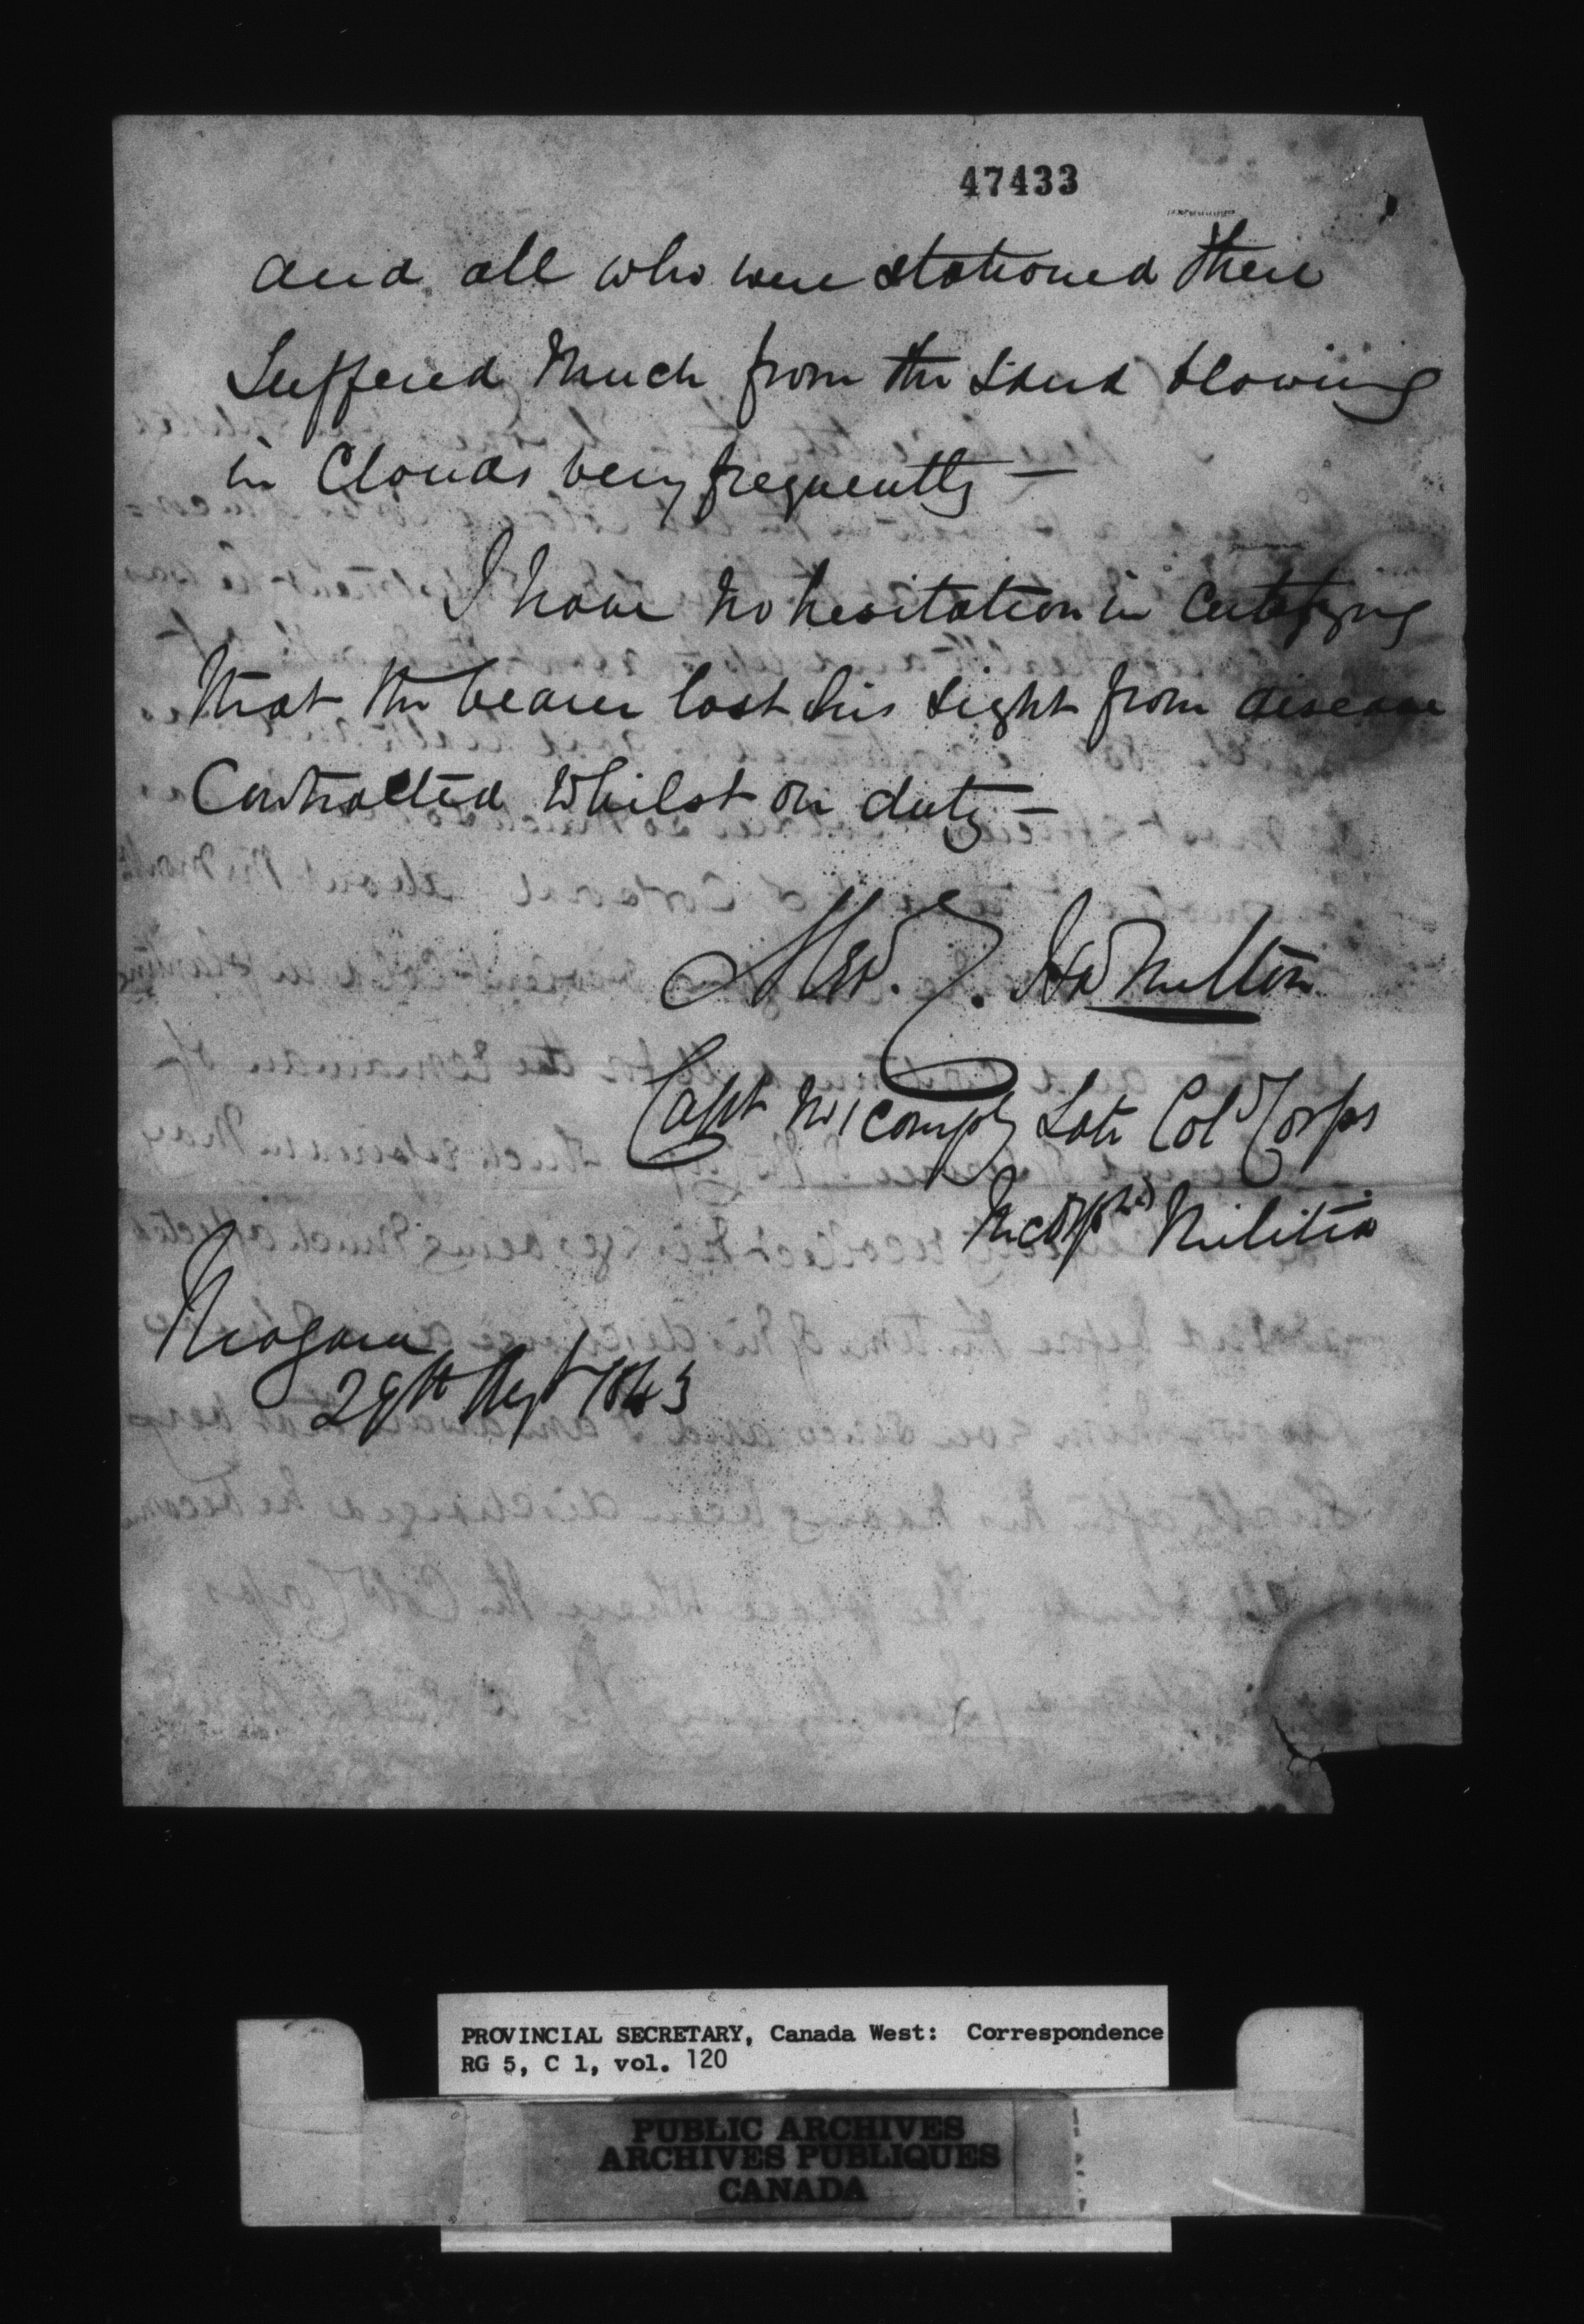 47433
and all who were stationed there
Suffered much from the sand blowing
in Clouds very frequently —
I have no hesitation in certifying
that the bearer lost his sight from disease
Contracted whilst on duty —
Alexr. J. Hamilton
Capt No 1 Compy Late Cold Corps
Incorptd Militia
Niagara
29th Augt 1843
PROVINCIAL SECRETARY, Canada West: Correspondence
RG 5, C 1, vol. 120
PUBLIC ARCHIVES
ARCHIVES PUBLIQUES
CANADA